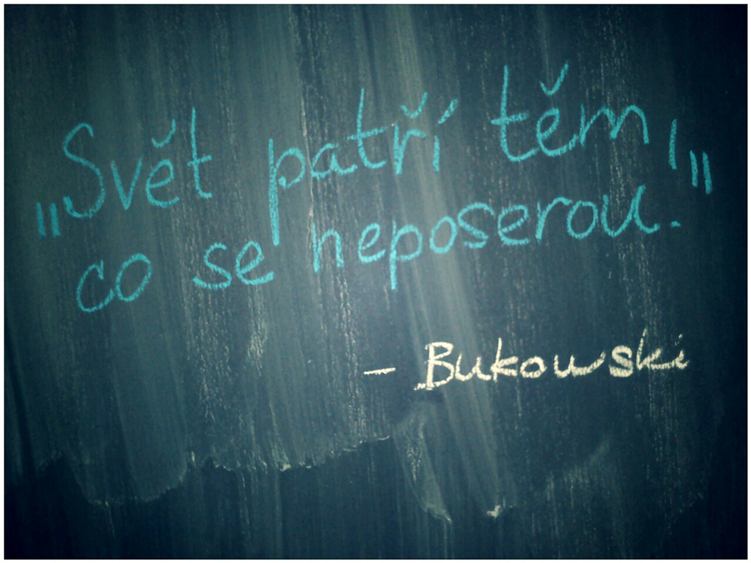 „Svět patří těm,
co se neposerou."
- Bukowski